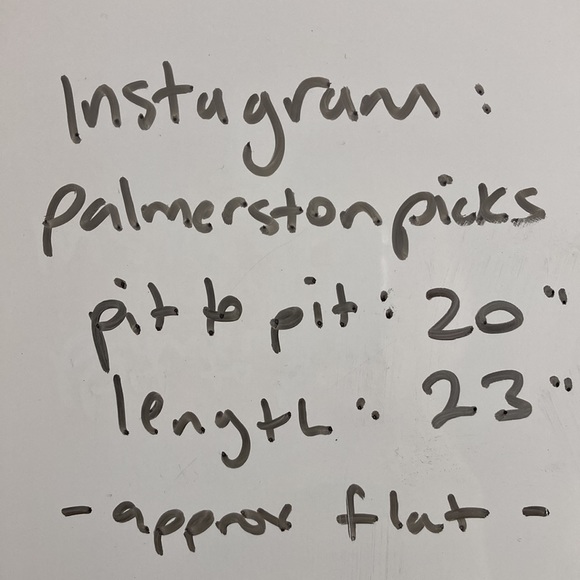 Instagram:
palmerstonpicks
pit to pit: 20"
length: 23"
- approx flat -